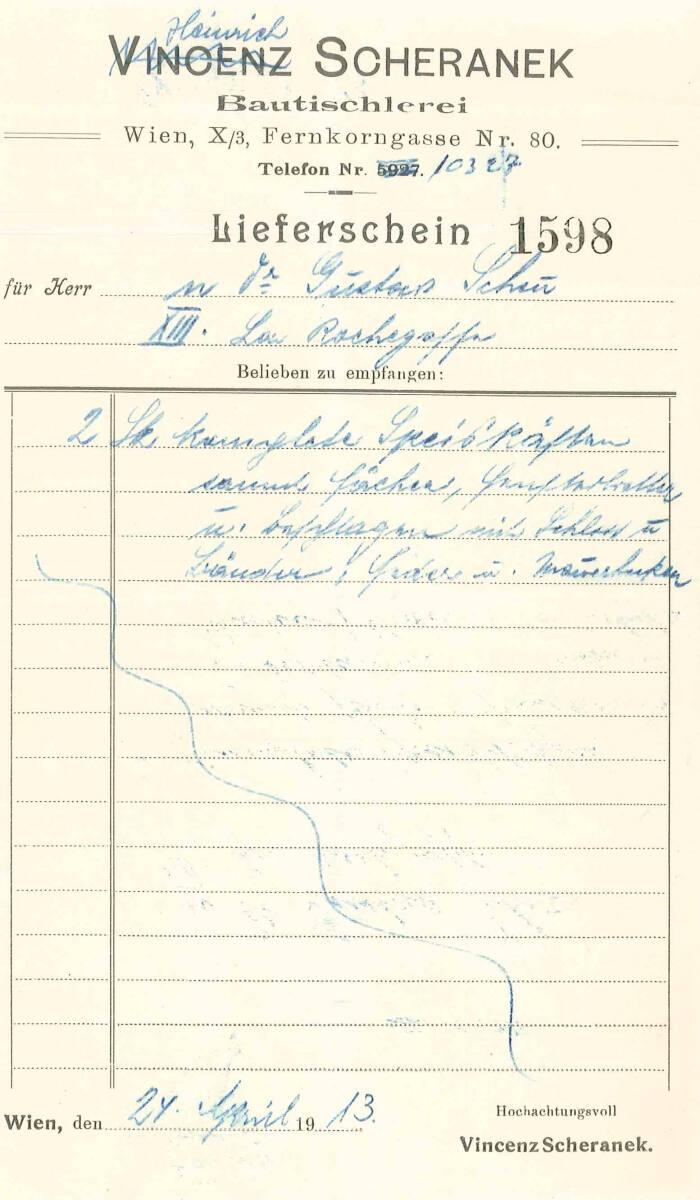 Heinrich
VINCENZ SCHERANEK
Bautischlerei
Wien, X/3, Fernkorngasse Nr. 80.
Telefon Nr. 5927. 10327
Lieferschein 1598
für Herr n Dr Gustav Scheu
XIII. La Rochegasse
Belieben zu empfangen:
2 Stk komplete Speiskästen
sammt Fächer, Fensterbretter
u. Beschlagen mit Schloss u
Bänder, u.
Wien, den 24. April 19 13.
Hochachtungsvoll
Vincenz Scheranek.